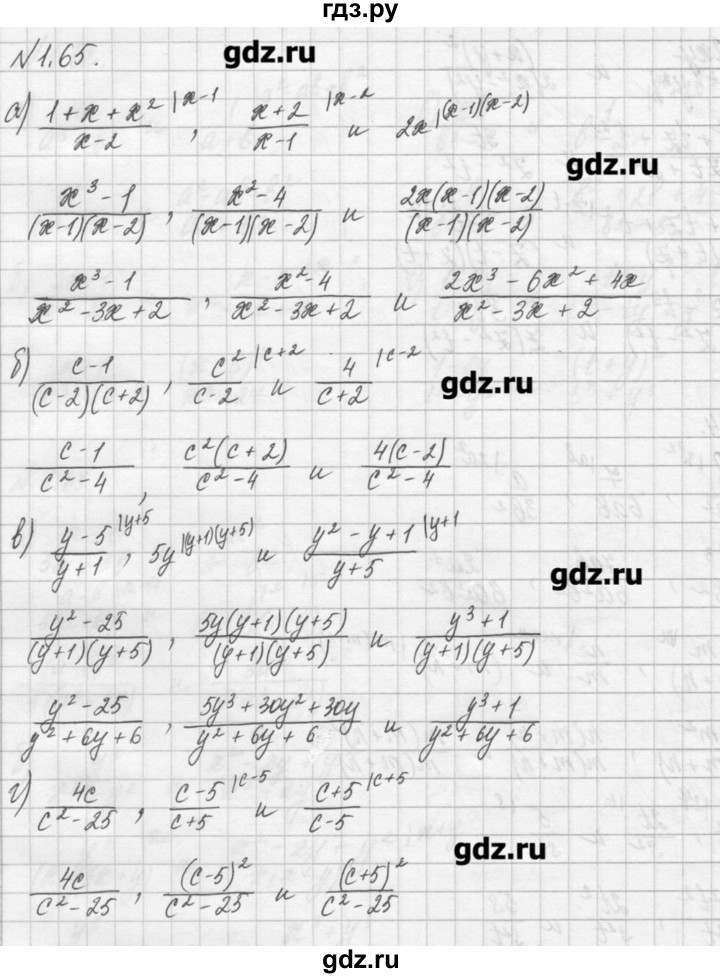 гдз.ру
№1.65.
gdz.ru
а) (1+x+x²)/(x-2) |x-1 , (x+2)/(x-1) |x-2 и 2x |(x-1)(x-2)
gdz.ru
(x³-1)/((x-1)(x-2)) , (x²-4)/((x-1)(x-2)) и (2x(x-1)(x-2))/((x-1)(x-2))
(x³-1)/(x²-3x+2) , (x²-4)/(x²-3x+2) и (2x³-6x²+4x)/(x²-3x+2)
б) (c-1)/((c-2)(c+2)) , c²/(c-2) |c+2 и 4/(c+2) |c-2
gdz.ru
(c-1)/(c²-4) , (c²(c+2))/(c²-4) и (4(c-2))/(c²-4)
в) (y-5)/(y+1) |y+5 , 5y |(y+1)(y+5) и (y²-y+1)/(y+5) |y+1
gdz.ru
(y²-25)/((y+1)(y+5)) , (5y(y+1)(y+5))/((y+1)(y+5)) и (y³+1)/((y+1)(y+5))
(y²-25)/(y²+6y+6) , (5y³+30y²+30y)/(y²+6y+6) и (y³+1)/(y²+6y+6)
г) 4c/(c²-25) , (c-5)/(c+5) |c-5 и (c+5)/(c-5) |c+5
gdz.ru
4c/(c²-25) , (c-5)²/(c²-25) и (c+5)²/(c²-25)
gdz.ru